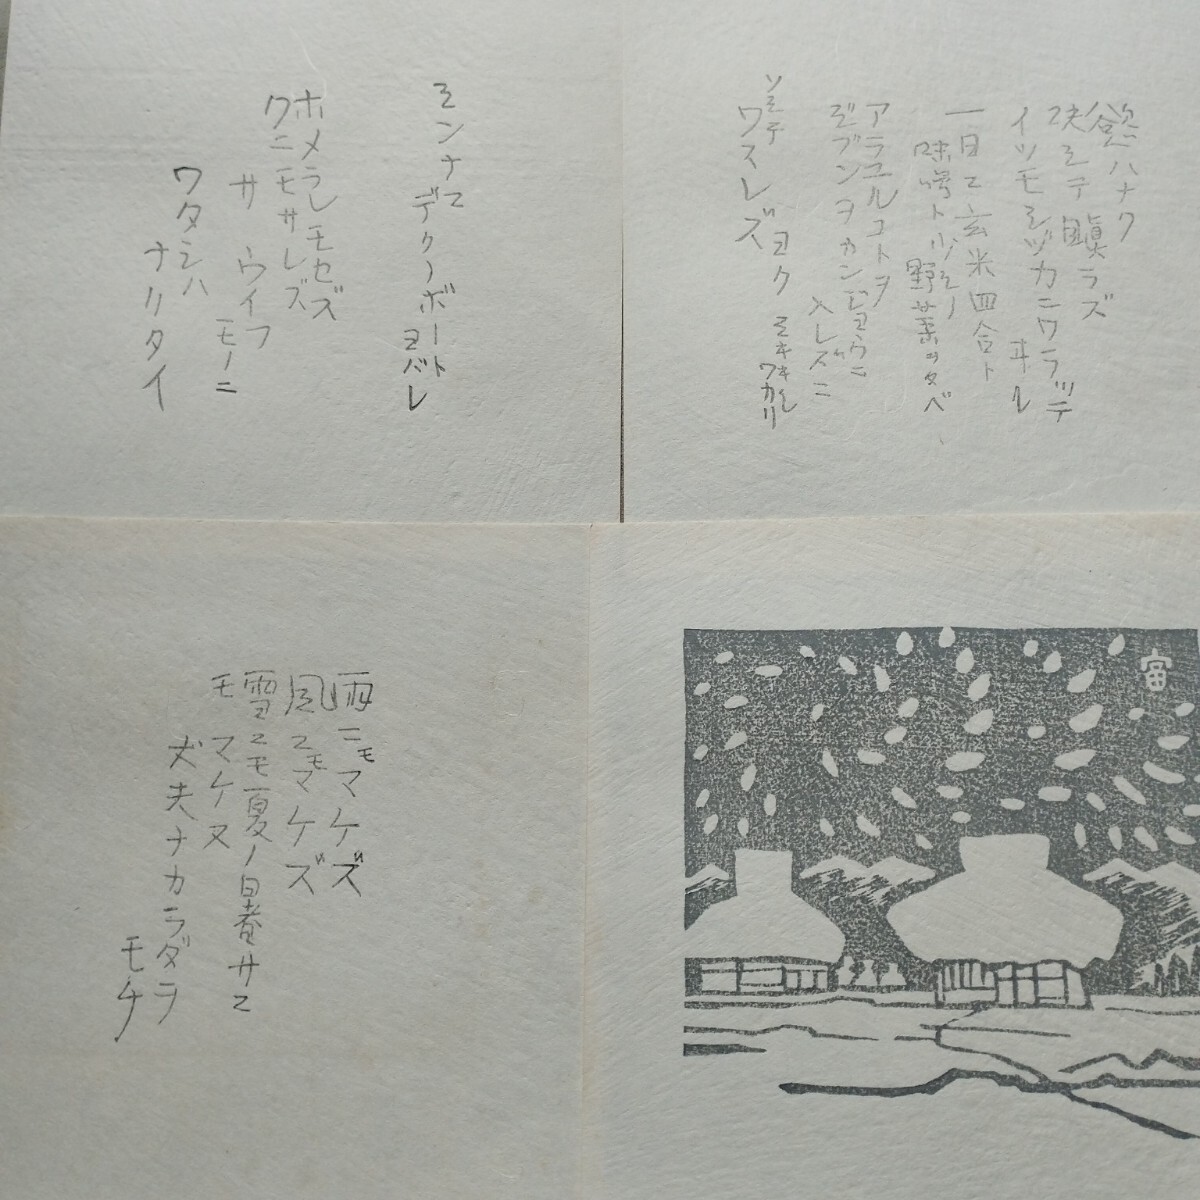 慾ハナク
決シテ瞋ラズ
イツモシヅカニワラッテ
ヰル
一日ニ玄米四合ト
味噌ト少シノ
野菜ヲタベ
アラユルコトヲ
ジブンヲカンジョウニ
入レズニ
ヨクミキキシ
ワカリ
ソシテ
ワスレズ
ミンナニ
デクノボート
ヨバレ
ホメラレモセズ
クニモサレズ
サウイフ
モノニ
ワタシハ
ナリタイ
雨ニモマケズ
風ニモマケズ
雪ニモ夏ノ暑サニ
モマケヌ
丈夫ナカラダヲ
モチ
富